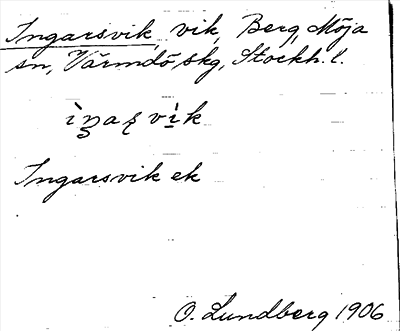 Ingarsvik, vik, Berg, Möja
sn, Värmdö skg, Stockh. l.
Ingarsvik ek
O. Lundberg 1906